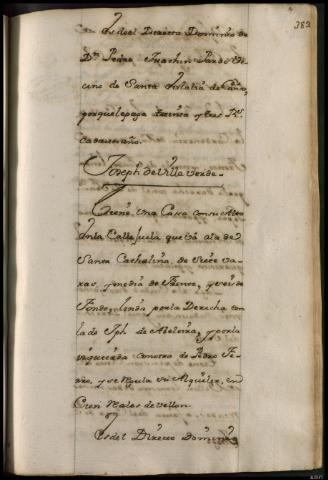 383
Es del Directo Dominio de
Dn. Pedro Juachin Pardo Ve-
cino de Santa
porque le paga treinta y tres Rs.
cada un año.
Joseph de Villa verde.
Tiene una Cassa con su Alto
en la Callejuela que va a la de
Santa Cathalina, de siete va-
ras, y media de frente, y seis de
fondo, linda por la Derecha con
la de Jph. de Abeleira, y por la
izquierda con otro de Pedro Fe-
rro, y se regula su Alquiler, en
Cien Reales de vellon.
Es del Directo Dominio